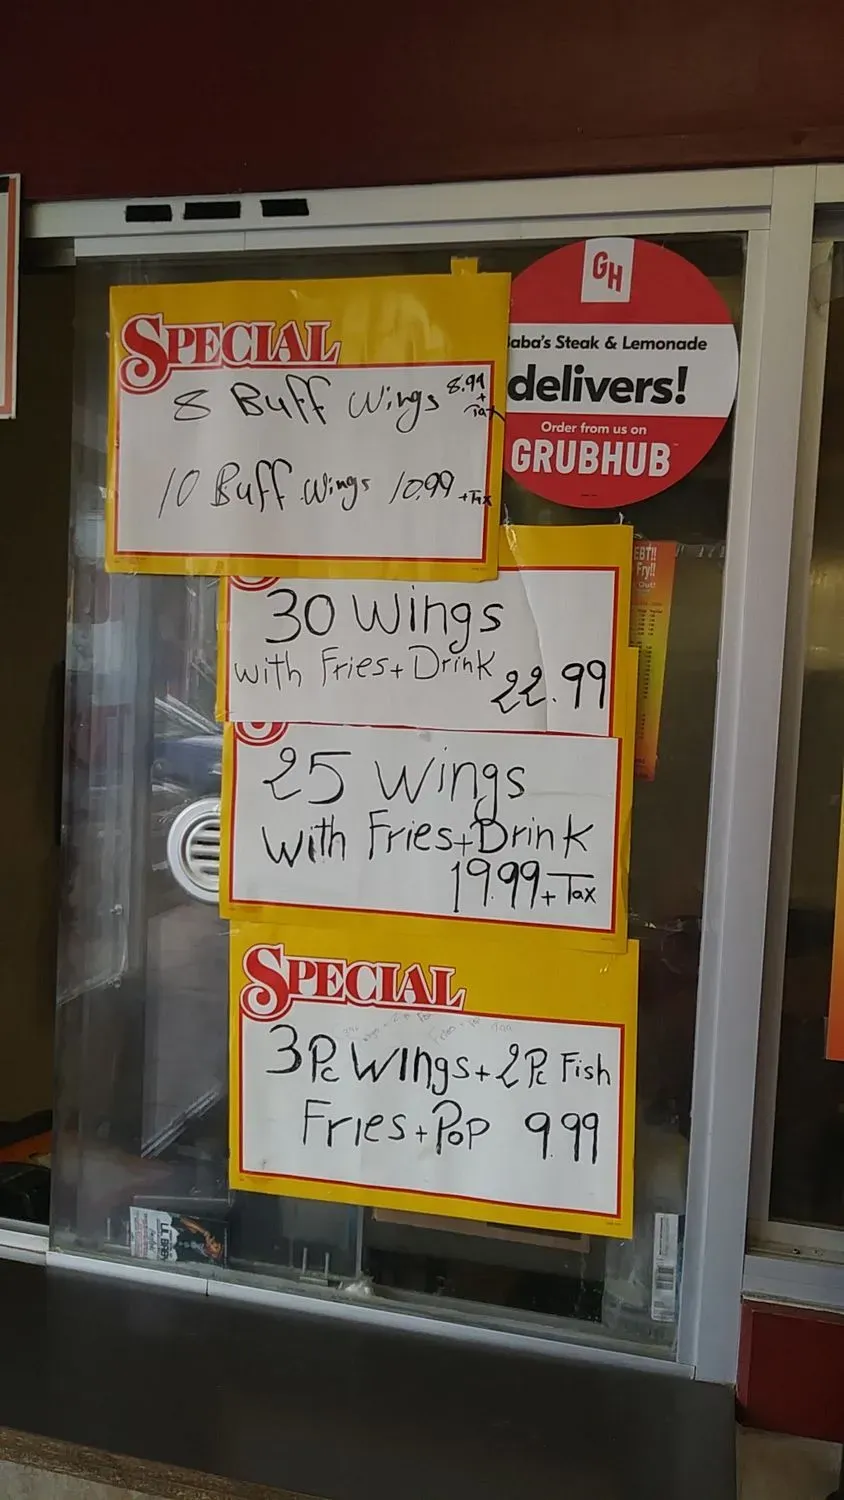 SPECIAL
8 Buff Wings 8.99
+
Tax
10 Buff Wings 10.99 + Tax
GH
aba's Steak & Lemonade
delivers!
Order from us on
GRUBHUB
EBT!!
Fry!!
Out!
30 Wings
with Fries + Drink
22.99
25 Wings
With Fries + Drink
19.99 + Tax
SPECIAL
3 Pc Wings + 2 Pc Fish
Fries + Pop 9.99
LIL BABY